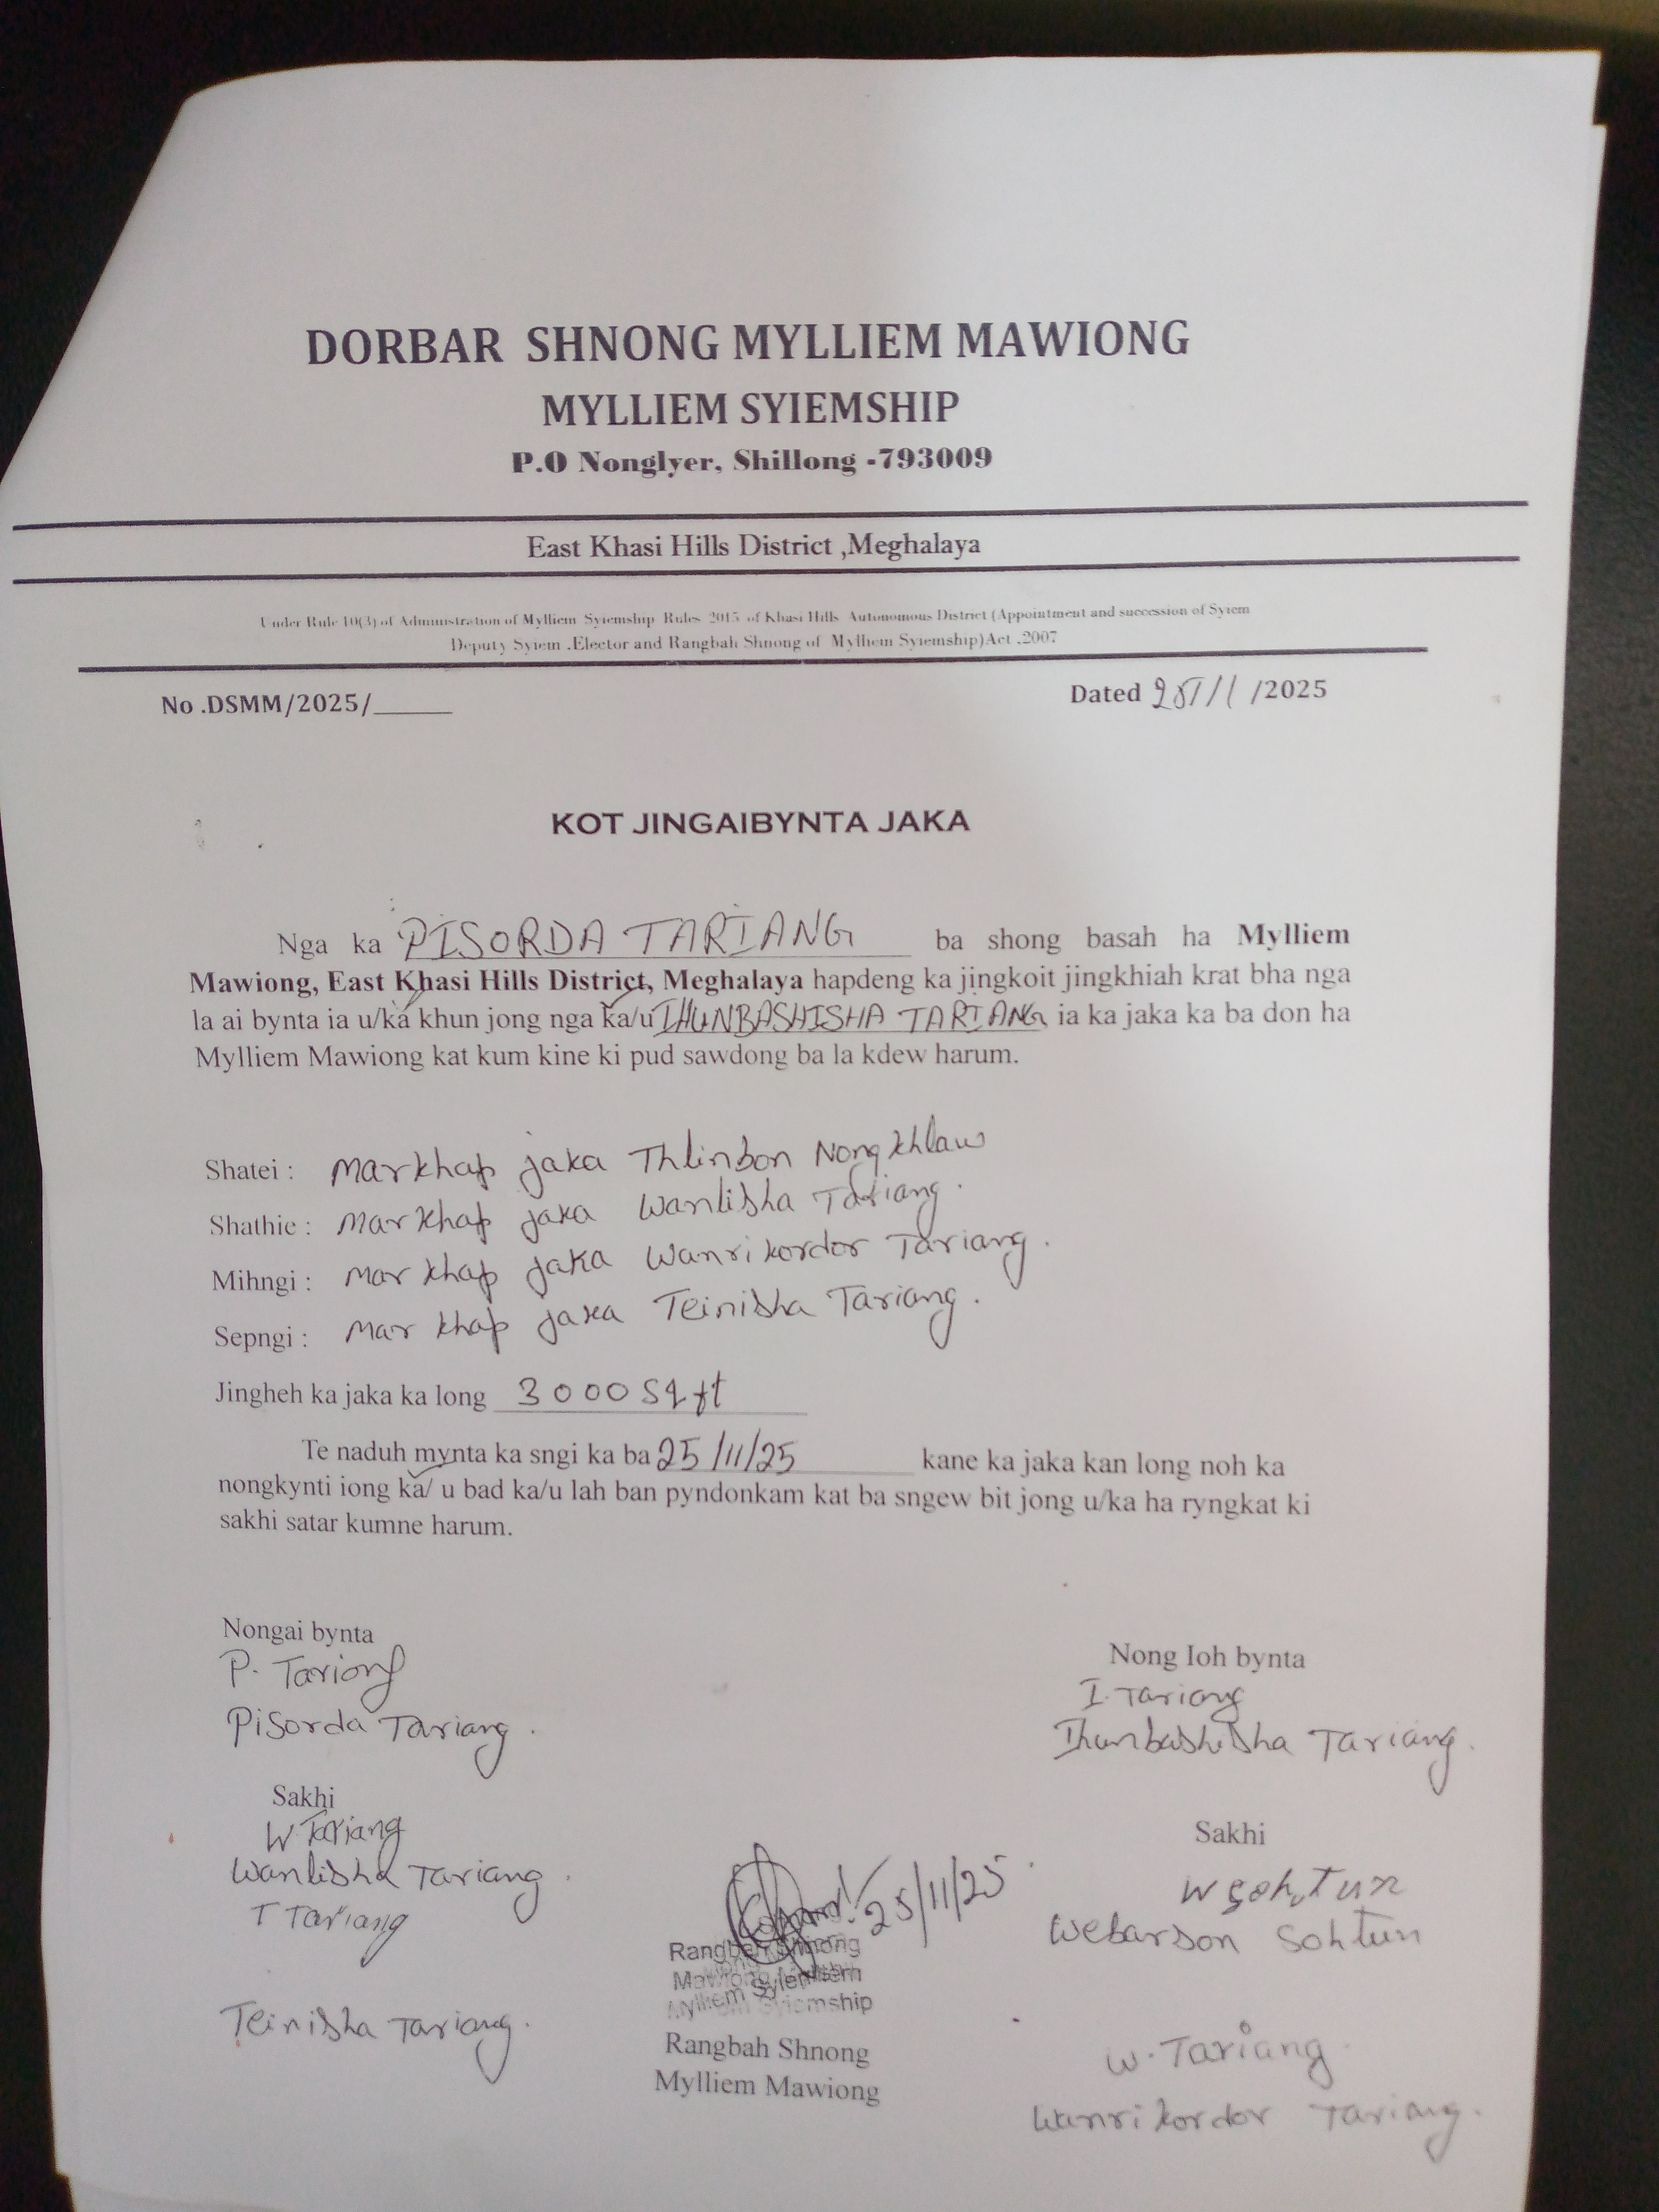 DORBAR SHNONG MYLLIEM MAWIONG
MYLLIEM SYIEMSHIP
P.O Nonglyer, Shillong -793009
East Khasi Hills District ,Meghalaya
Under Rule 10(3) of Administration of Mylliem Syiemship Rules 2015 of Khasi Hills Autonomous District (Appointment and succession of Syiem
Deputy Syiem .Elector and Rangbah Shnong of Mylliem Syiemship)Act .2007
No .DSMM/2025/______ Dated /2025
KOT JINGAIBYNTA JAKA
Nga ka PISORDA TARIANG ba shong basah ha Mylliem
Mawiong, East Khasi Hills District, Meghalaya hapdeng ka jingkoit jingkhiah krat bha nga
la ai bynta ia u/ka khun jong nga ka/u IHUNBASHISHA TARIANG ia ka jaka ka ba don ha
Mylliem Mawiong kat kum kine ki pud sawdong ba la kdew harum.
Shatei : Markhap jaka Thlinbon Nongkhlaw
Shathie : Markhap jaka Wanlisha Tariang.
Mihngi : Mar khap jaka Wanrikordor Tariang.
Sepngi : Mar khap jaka Teinisha Tariang.
Jingheh ka jaka ka long 3000 sq ft
Te naduh mynta ka sngi ka ba 25/11/25 kane ka jaka kan long noh ka
nongkynti iong ka/ u bad ka/u lah ban pyndonkam kat ba sngew bit jong u/ka ha ryngkat ki
sakhi satar kumne harum.
Nongai bynta
P. Tariang
Pisorda Tariang.
Nong Ioh bynta
I. Tariang
Ihunbashisha Tariang.
Sakhi
W Tariang
Wanlisha Tariang.
T Tariang
Teinisha Tariang.
25/11/25
Rangbah Shnong
Mawiong
Mylliem Syiemship
Rangbah Shnong
Mylliem Mawiong
Sakhi
W Sohtun
Webarson Sohtun
W. Tariang
Wanrikordor Tariang.